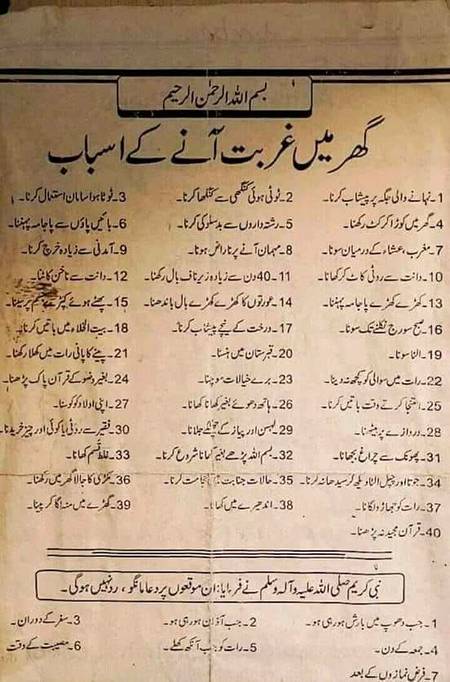 بسم اللہ الرحمٰن الرحیم
گھر میں غربت آنے کے اسباب
1۔ نہانے والی جگہ پر پیشاب کرنا۔ 2۔ ٹوٹی ہوئی کنگھی سے کنگھا کرنا۔ 3۔ ٹوٹا ہوا سامان استعمال کرنا۔
4۔ گھر میں کوڑا کرکٹ رکھنا۔ 5۔ رشتہ داروں سے بدسلوکی کرنا۔ 6۔ بائیں پاؤں سے پاجامہ پہننا۔
7۔ مغرب، عشاء کے درمیان سونا۔ 8۔ مہمان آنے پر ناراض ہونا۔ 9۔ آمدنی سے زیادہ خرچ کرنا۔
10۔ دانت سے روٹی کاٹ کر کھانا۔ 11۔ 40 دن سے زیادہ زیر ناف بال رکھنا۔ 12۔ دانت سے ناخن کاٹنا۔
13۔ کھڑے کھڑے پاجامہ پہننا۔ 14۔ عورتوں کا کھڑے کھڑے بال باندھنا۔ 15۔ پھٹے ہوئے کپڑے جسم پر سینا۔
16۔ صبح سورج نکلنے تک سونا۔ 17۔ درخت کے نیچے پیشاب کرنا۔ 18۔ بیت الخلاء میں باتیں کرنا۔
19۔ الٹا سونا۔ 20۔ قبرستان میں ہنسنا۔ 21۔ پینے کا پانی رات میں کھلا رکھنا۔
22۔ رات میں سوالی کو کچھ نہ دینا۔ 23۔ برے خیالات سوچنا۔ 24۔ بغیر وضو کے قرآن پاک پڑھنا۔
25۔ استنجا کرتے وقت باتیں کرنا۔ 26۔ ہاتھ دھوئے بغیر کھانا کھانا۔ 27۔ اپنی اولاد کو کوسنا۔
28۔ دروازے پر بیٹھنا۔ 29۔ لہسن اور پیاز کے چھلکے جلانا۔ 30۔ فقیر سے روٹی یا کوئی اور چیز خریدنا۔
31۔ پھونک سے چراغ بجھانا۔ 32۔ بسم اللہ پڑھے بغیر کھانا شروع کرنا۔ 33۔ غلط قسم کھانا۔
34۔ جوتا اور چپل الٹا دیکھ کر سیدھا نہ کرنا۔ 35۔ حالات جنابت میں حجامت کرنا۔ 36۔ مکڑی کا جالا گھر میں رکھنا۔
37۔ رات کو جھاڑو لگانا۔ 38۔ اندھیرے میں کھانا۔ 39۔ گھڑے میں منہ لگا کر پینا۔
40۔ قرآن مجید نہ پڑھنا۔
نبی کریم صلی اللہ علیہ وآلہ وسلم نے فرمایا: ان موقعوں پر دعا مانگو، رد نہیں ہوگی۔
1۔ جب دھوپ میں بارش ہو رہی ہو۔ 2۔ جب آذان ہو رہی ہو۔ 3۔ سفر کے دوران۔
4۔ جمعہ کے دن۔ 5۔ رات کو جب آنکھ کھلے۔ 6۔ مصیبت کے وقت
7۔ فرض نمازوں کے بعد